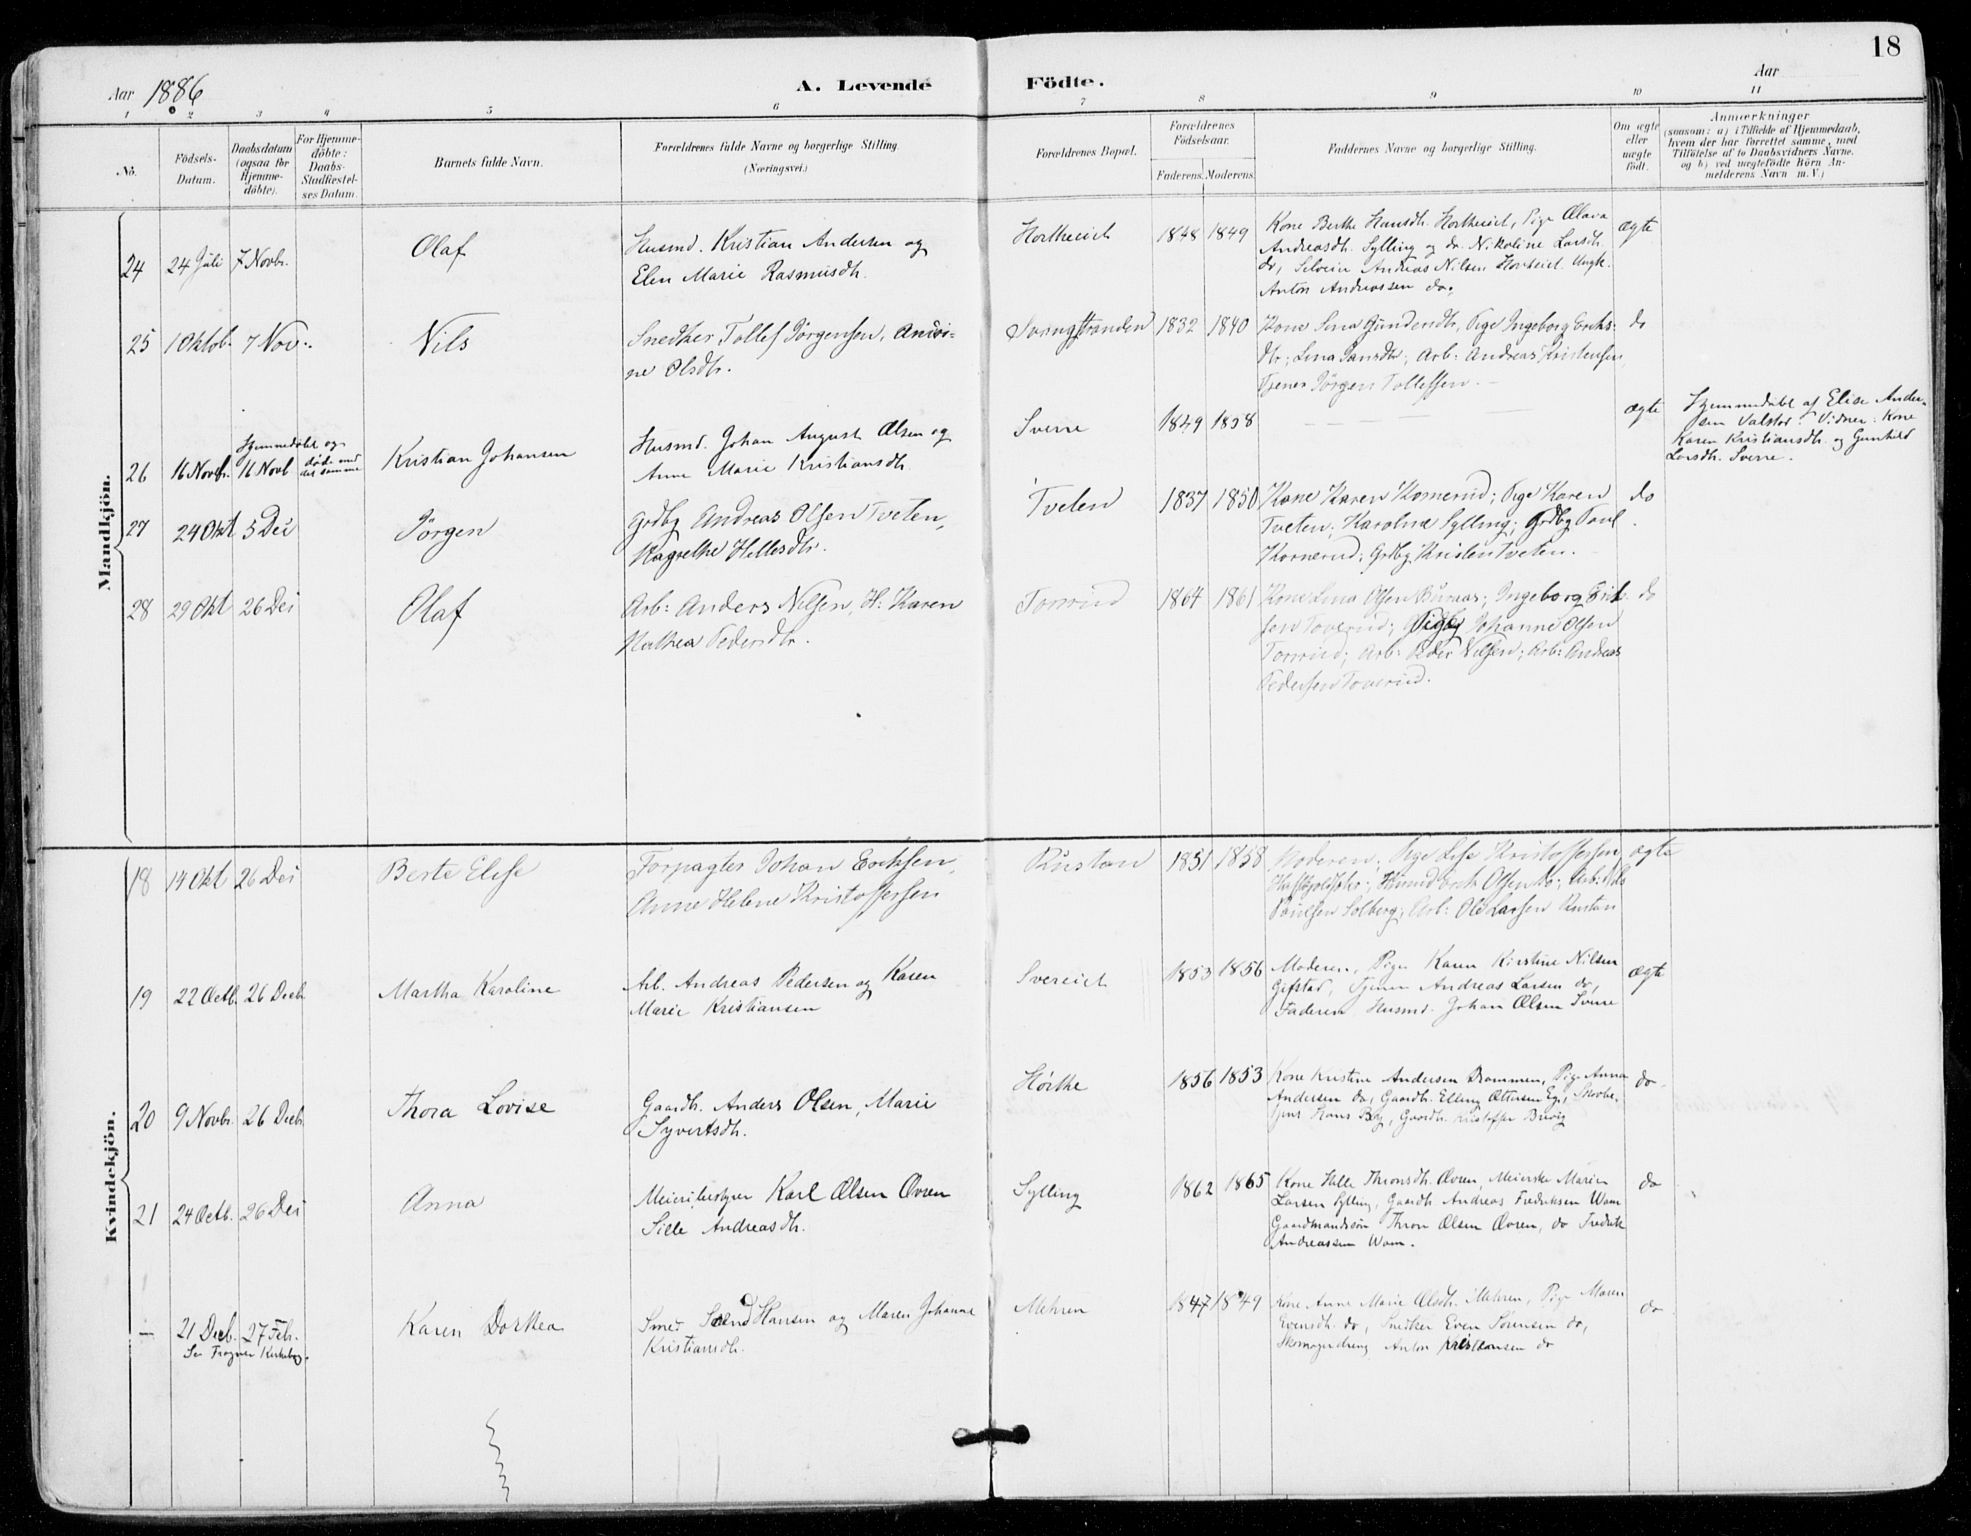 18
Aar 1886
A. Levende Födte.
Aar
1 2 3 4 5 6 7 8 9 10 11
No.
Födsels-Datum.
Daabsdatum (ogsaa for Hjemme-döbte).
For Hjemme-döbte: Daabs-Stadfæstel-ses Datum.
Barnets fulde Navn.
Forældrenes fulde Navne og borgerlige Stilling.
(Næringsvei.)
Forældrenes Bopæl.
Forældrenes Födselsaar.
Faderens. Moderens.
Faddernes Navne og borgerlige Stilling.
Om ægte eller uægte födt.
Anmærkninger
(saasom: a) i Tilfælde af Hjemmedaab,
hvem der har forrettet samme, med
Tilföielse af to Daabsvidners Navne.
og b) ved uægtefödte Börn An-
melderens Navn m. V.)
Mandkjön.
24 24 Juli 7 Novbr. Olaf
Husmd. Kristian Andersen og
Elen Marie Rasmusdh.
1848 1849
Kone Berthe Hansdh. Pige Olava
Andreasdh. Sylling og do Nikoline Larsdh.
do, Andreas Nilsen Ungk.
Anton Andreassen do.
ægte
25 1 Oktob. 7 Nov. Nils
Snedker Tollef Jörgensen,
ne Olsdtr.
Svangstranden 1832 1840
Kone Lina Gundersdtr, Pige Ingeborg Eriks-
dtr; Lina Jansdtr; Arb: Andreas Kristensen,
Tjener Jörgen Tollefsen.
do
26 16 Novbr. 16 Novb
Hjemmedöbt og
död med
det samme
Kristian Johansen
Husmd. Johan August Olsen og
Anne Marie Kristiansdh.
Sverre 1849 1858
ægte
Hjemmedöbt af Elise Ander-
sen Valstad. Vidner: Kone
Karen Kristiansdh. og Gunhild
Larsdh. Sverre.
27 24 Okt 5 Dec Jörgen
Grdbg Andreas Olsen Tveten,
Hellesdtr.
Tveten 1837 1850
Kone Karen Komerud; Pige Karen
Tveten; Karoline Sylling; Grdbg Paul
Kornerud; Grdbg Kristen Tveten.
do
28 29 Okt 26 Dec Olaf
Arb: Anders Nilsen, H: Karen
Mathea Pedersdtr.
Toverud 1864 1861
Kone Lina Olsen Ingeborg Erik-
sen Toverud; Pige Johanne Olsen
Toverud; Arb: Peder Nilsen; Arb: Andreas
Pedersen Toverud.
do
Kvindekjön.
18 14 Okt 26 Dec Berte Elise
Forpagter Johan Eriksen,
Anne Helene Kristoffersen
Rustan 1851 1858
Moderen; Pige Lise Kristoffersen
Husmd Erik Olsen do; Arb: Nils
Paulsen Solberg; Arb: Ole Larsen Rustan
ægte
19 22 Octb. 26 Decb. Martha Karoline
Arb. Andreas Pedersen og Karen
Marie Kristiansen
Svereiet 1853 1856
Moderen, Pige Karen Kirstine Nilsen
Gifstad, Tjener Andreas Larsen do,
Faderen, Husmd. Johan Olsen Sverre
ægte
20 9 Novbr. 26 Decbr. Thora Lovise
Gaardb. Anders Olsen, Marie
Syvertsdh.
Hörthe 1856 1853
Kone Kristine Andersen Drammen, Pige Anna
Andersen do, Gaardb. Elling Ottersen Eg,
Hans Gaardb. Kristoffer
do
21 24 Octb. 26 Dec Anna
Meieribestyrer Karl Olsen Övren
Sille Andreasdh.
Sylling 1862 1865
Kone Helle Thronsdh. Övren, Meierske Marie
Larsen Sylling, Gaardb. Andreas Fredriksen Wam
Gaardmandssön Thron Olsen Övren, do Fredrik
Andreassen Wam.
do
— 21 Decb. 27 Feb.
Se Fragner Kirkebog.
Karen Dorthea
Smed Hansen og Maren Johanne
Kristiansdh.
Mehren 1847 1849
Kone Anne Marie Olsdh. Mehren, Pige Maren
Evensdh. do, Snedker Even Sörensen do,
Skomagerdreng Anton Kristiansen do
do